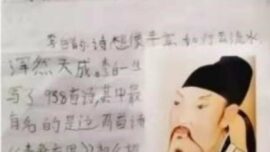 李白的诗想像丰富,如行云流水,
浑然天成。李白一生
写了938首诗,其中最
有名的是这两首诗